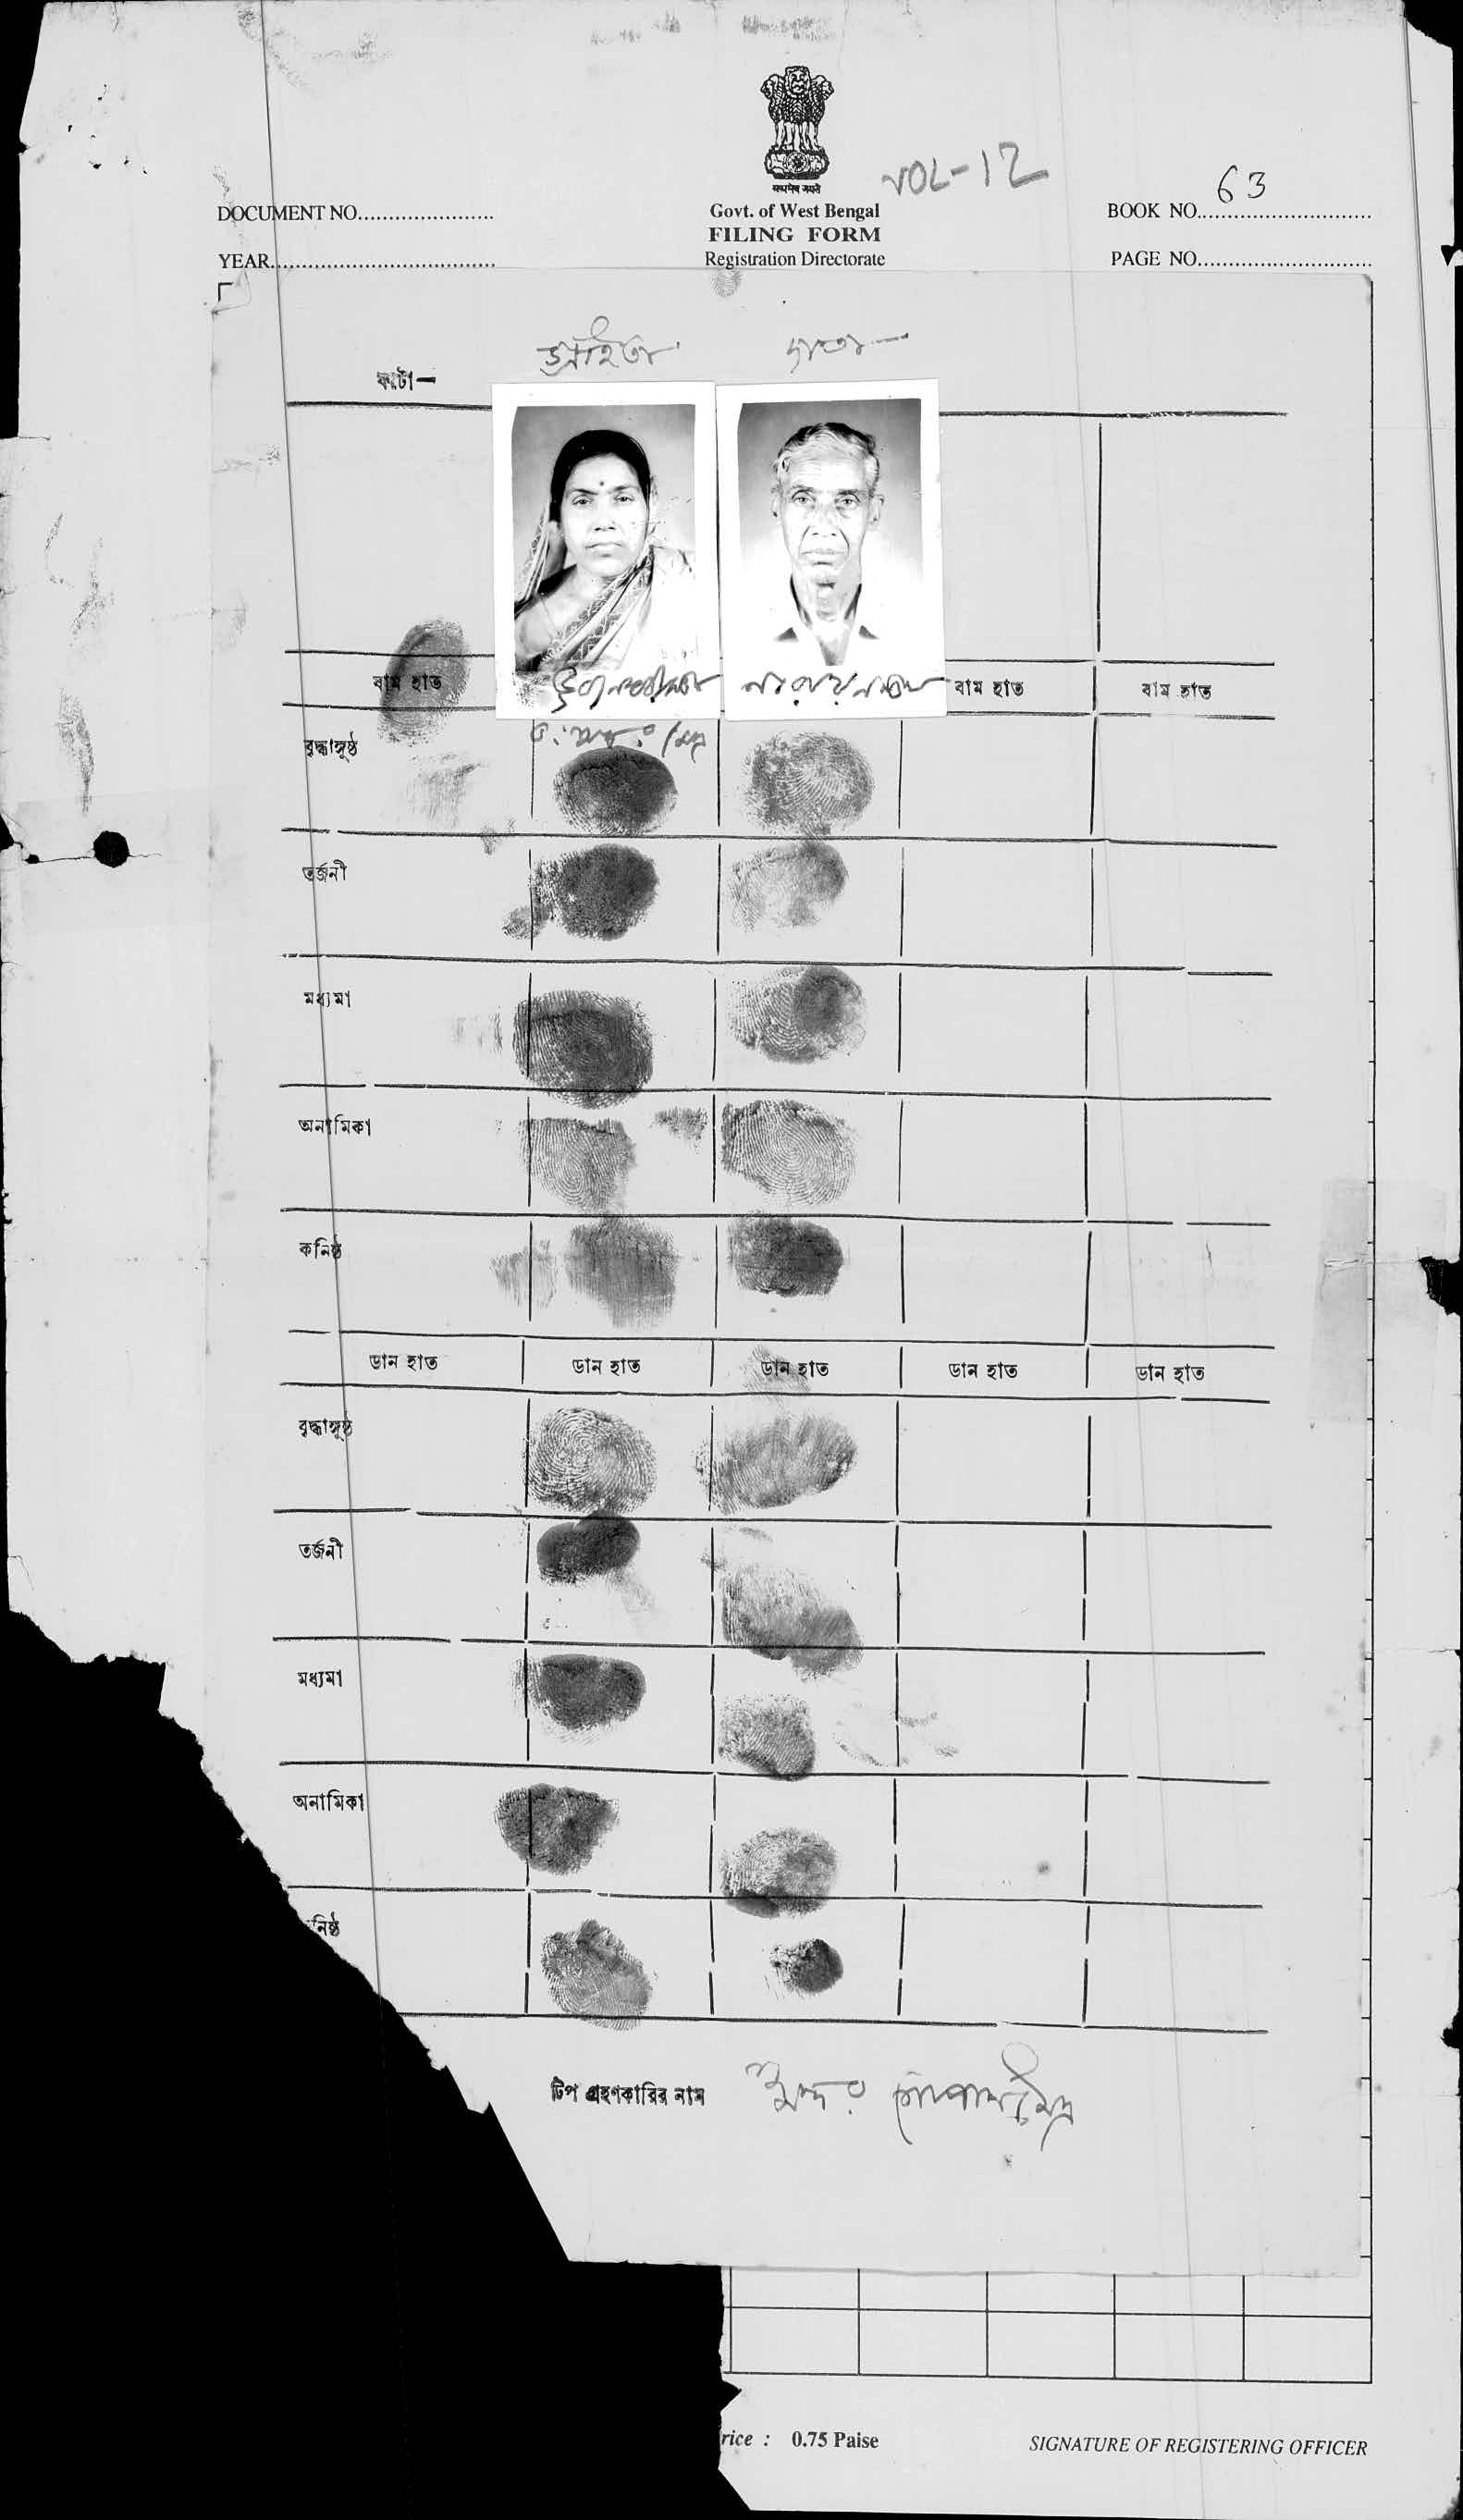 सत्यमेव जयते
VOL-12
63
DOCUMENT NO......................
Govt. of West Bengal
BOOK NO............................
FILING FORM
YEAR....................................
Registration Directorate
PAGE NO............................
গ্রহিতা
দাতা
ফটো-
বাম হাত
বাম হাত
বাম হাত
বৃদ্ধাঙ্গুষ্ঠ
তর্জনী
মধ্যমা
অনামিকা
কনিষ্ঠ
ডান হাত
ডান হাত
ডান হাত
ডান হাত
ডান হাত
বৃদ্ধাঙ্গুষ্ঠ
তর্জনী
মধ্যমা
অনামিকা
নিষ্ঠ
টিপ গ্রহণকারির নাম
rice : 0.75 Paise
SIGNATURE OF REGISTERING OFFICER